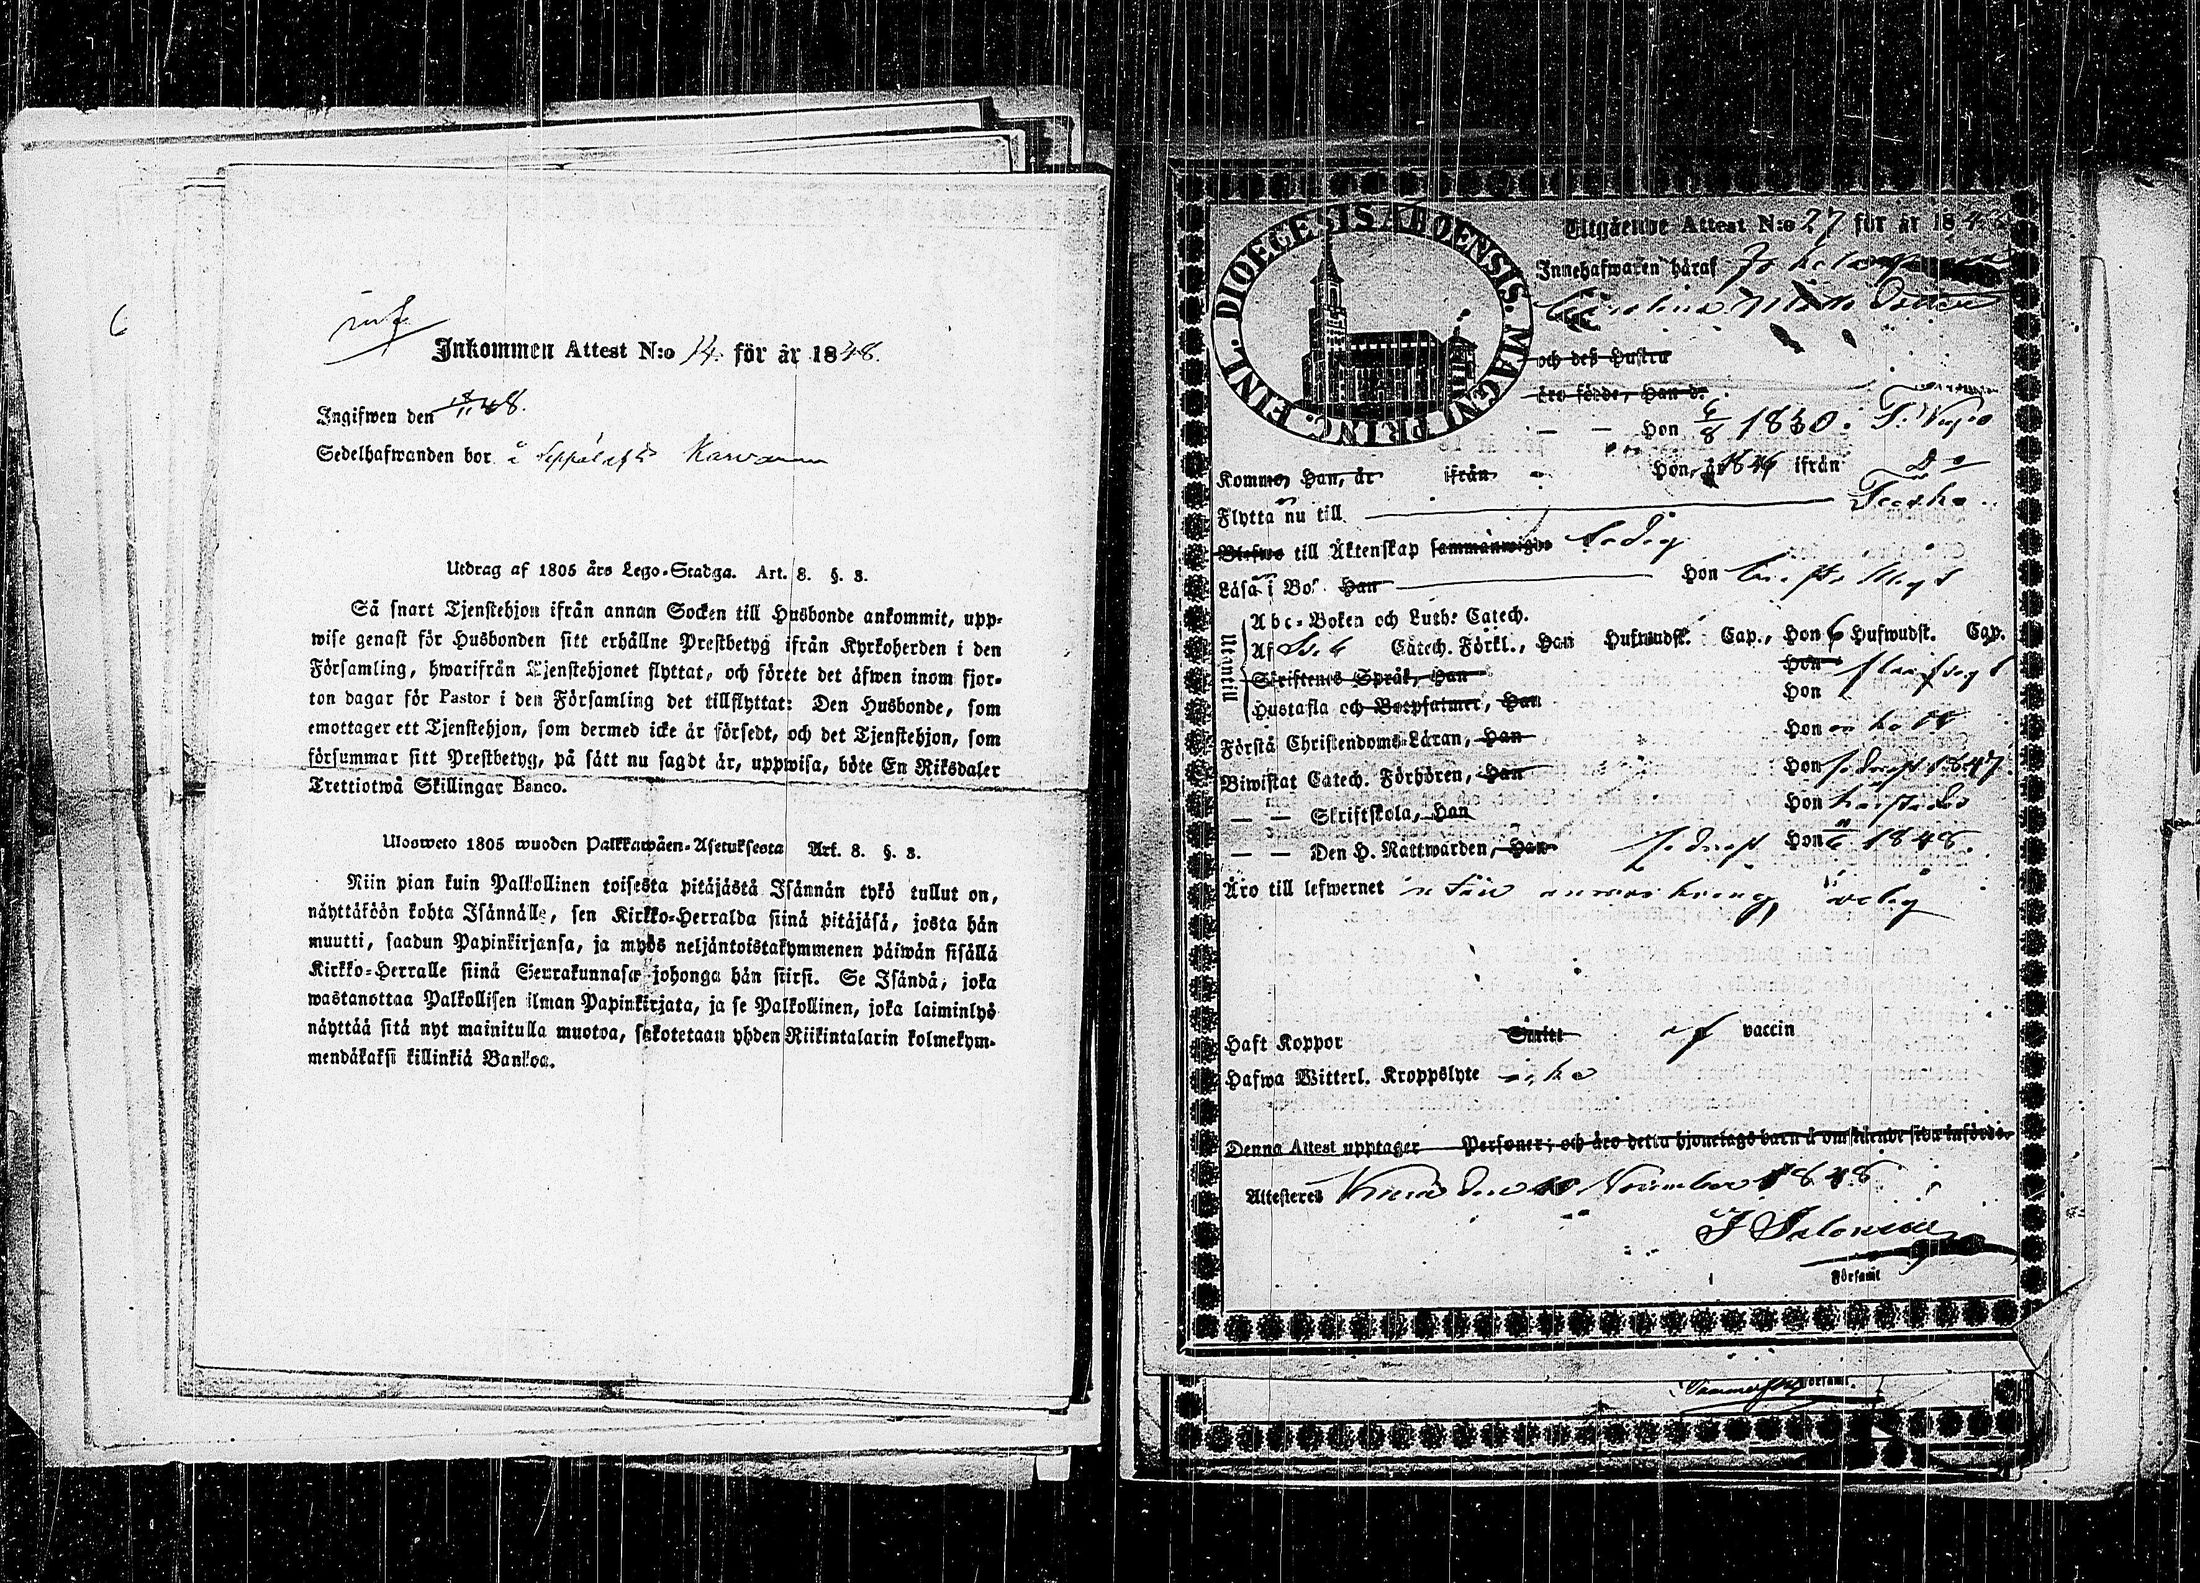 6
Inkommen Attest N:o 14. för år 1848.
Ingifwen den 18/11 48.
Sedelhafwanden bor å
Utdrag af 1805 års Lego-Stadga. Art. 8. §. 8.
Så snart Tjenstehjon ifrån annan Socken till Husbonde ankommit, upp-
wise genast för Husbonden sitt erhållne Prestbetyg ifrån Kyrkoherden i den
Församling, hwarifrån Tjenstehjonet flyttat, och förete det äfwen inom fjor-
ton dagar för Pastor i den Församling det tillflyttat: Den Husbonde, som
emottager ett Tjenstehjon, som dermed icke är försedt, och det Tjenstehjon, som
försummar sitt Prestbetyg, på sätt nu sagdt är, uppwisa, böte En Riksdaler
Trettiotwå Skillingar Banco.
Ulosweto 1805 wuoden Palkkawäen-Asetuksesta Art. 8. §. 8.
Niin pian kuin Palkollinen toisesta pitäjästä Isännän tykö tullut on,
näyttäköön kohta Isännälle, sen Kirkko-Herralda siinä pitäjäsä, josta hän
muutti, saadun Papinkirjansa, ja myös neljäntoistakymmenen päiwän sisällä
Kirkko-Herralle siinä Seurakunnasa johonga hän siirsi. Se Isändä, joka
wastanottaa Palkollisen ilman Papinkirjata, ja se Palkollinen, joka laiminlyö
näyttää sitä nyt mainitulla muotoa, sakotetaan yhden Riikintalarin kolmekym-
mendäkaksi killinkiä Bankoa.
DIOECESIS ABOENSIS. MAGNI PRINC. FINL.
Utgående Attest N:o 27 för år 184
Innehafwaren häraf
Carolina Matts Dotter
och deß Hustru
äro födde, Han d.
— — Hon 6/8 1830.
Kommo, Han, år ifrån Hon, år 1846 ifrån Do
Flytta nu till
Blefwo till Äktenskap sammanwigde ledig
Läsa i Bok Han Hon
Utantill
Abc-Boken och Luth. Catech.
Af Catech. Förkl., Han Hufwudst. Cap., Hon 6 Hufwudst. Cap.
Skriftenes Språk, Han Hon
Hustafla och Botpsalmer, Han Hon
Förstå Christendoms-Läran, Han Hon
Biwistat Catech. Förhören, Han Hon sednast 1847.
— — Skriftskola, Han Hon
— — Den H. Nattwarden, Han sednast Hon 1848.
Äro till lefwernet utan anmärkning
Haft Koppor Smitt af vaccin
Hafwa Witterl. Kroppslyte icke
Denna Attest upptager Personer; och äro detta hjonelags barn å omstående sida införde.
Attesteres den 10 November 1848
Församl
Församl.